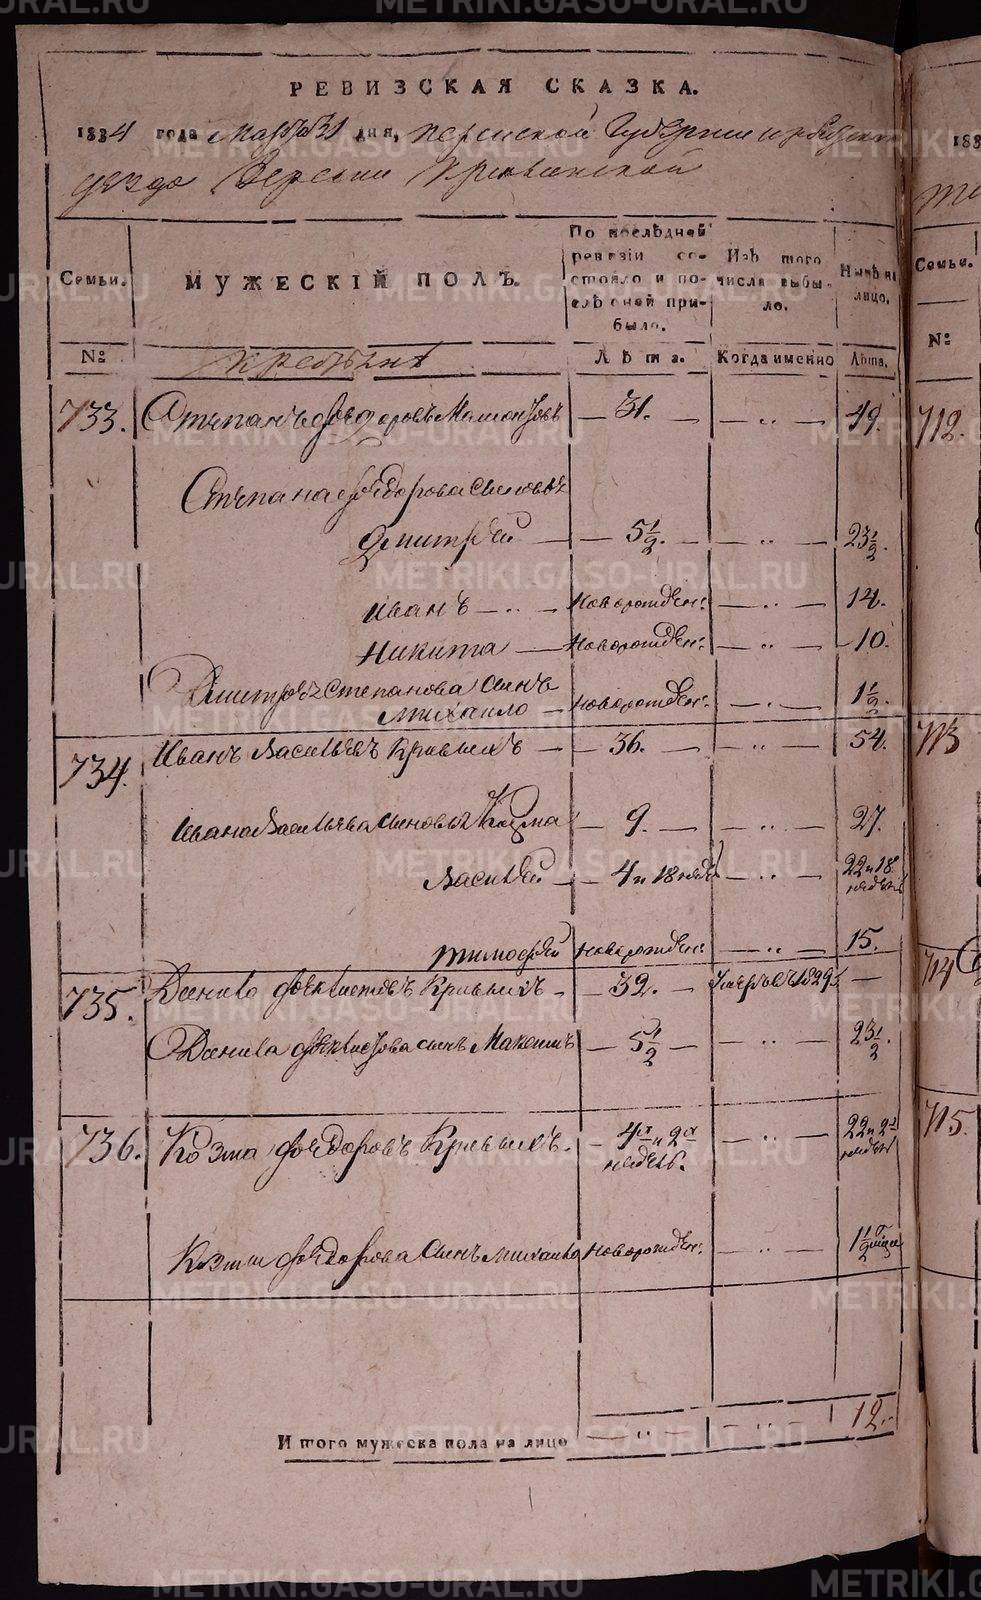 РЕВИЗСКАЯ СКАЗКА.
1834 года Марта 31 дня, Пермской Губернии Ирбитскаго
уезда Деревни Кривинской
Семьи.
МУЖЕСКІЙ ПОЛЪ.
По послѣдней ревизіи состояло и послѣ оной прибыло.
Изъ того числа выбыло.
Нынѣ на лицо.
№
Крестьянѣ
Лѣта.
Когда именно
Лѣта.
733. Степанъ Федоровъ Мамонтовъ — 31. — — „ — 49.
Степана Федорова сыновья
Дмитрей — 5½. — — „ — 23½.
Иванъ — „ — Новорожден: — „ — 14.
Никита — Новорожден: — „ — 10.
Дмитрея Степанова сынъ
Михаило — новорожден: — „ — 1½.
734. Иванъ Васильевъ Кривыхъ — 36. — — „ — 54.
Ивана Васильева сыновья Козма — 9. — — „ — 27.
Василей — 4 и 18 недѣ — „ — 22 и 18 недѣль
Тимофей новорожден: — „ — 15.
735. Данило Феклистовъ Кривыхъ — 32. — Умеръ въ 1829. —
Данила Феклистова сынъ Максимъ — 5½ — — „ — 23½.
736. Козма Федоровъ Кривыхъ. — 4 и 2 недѣль. — „ — 22 и 2 недѣль
Козмы Федорова сынъ Михаило новорожден: — „ — 1½
И того мужеска пола на лицо — „ — — „ — 12.
183
Семьи.
№
712.
713
714
715.
METRIKI.GASO-URAL.RU